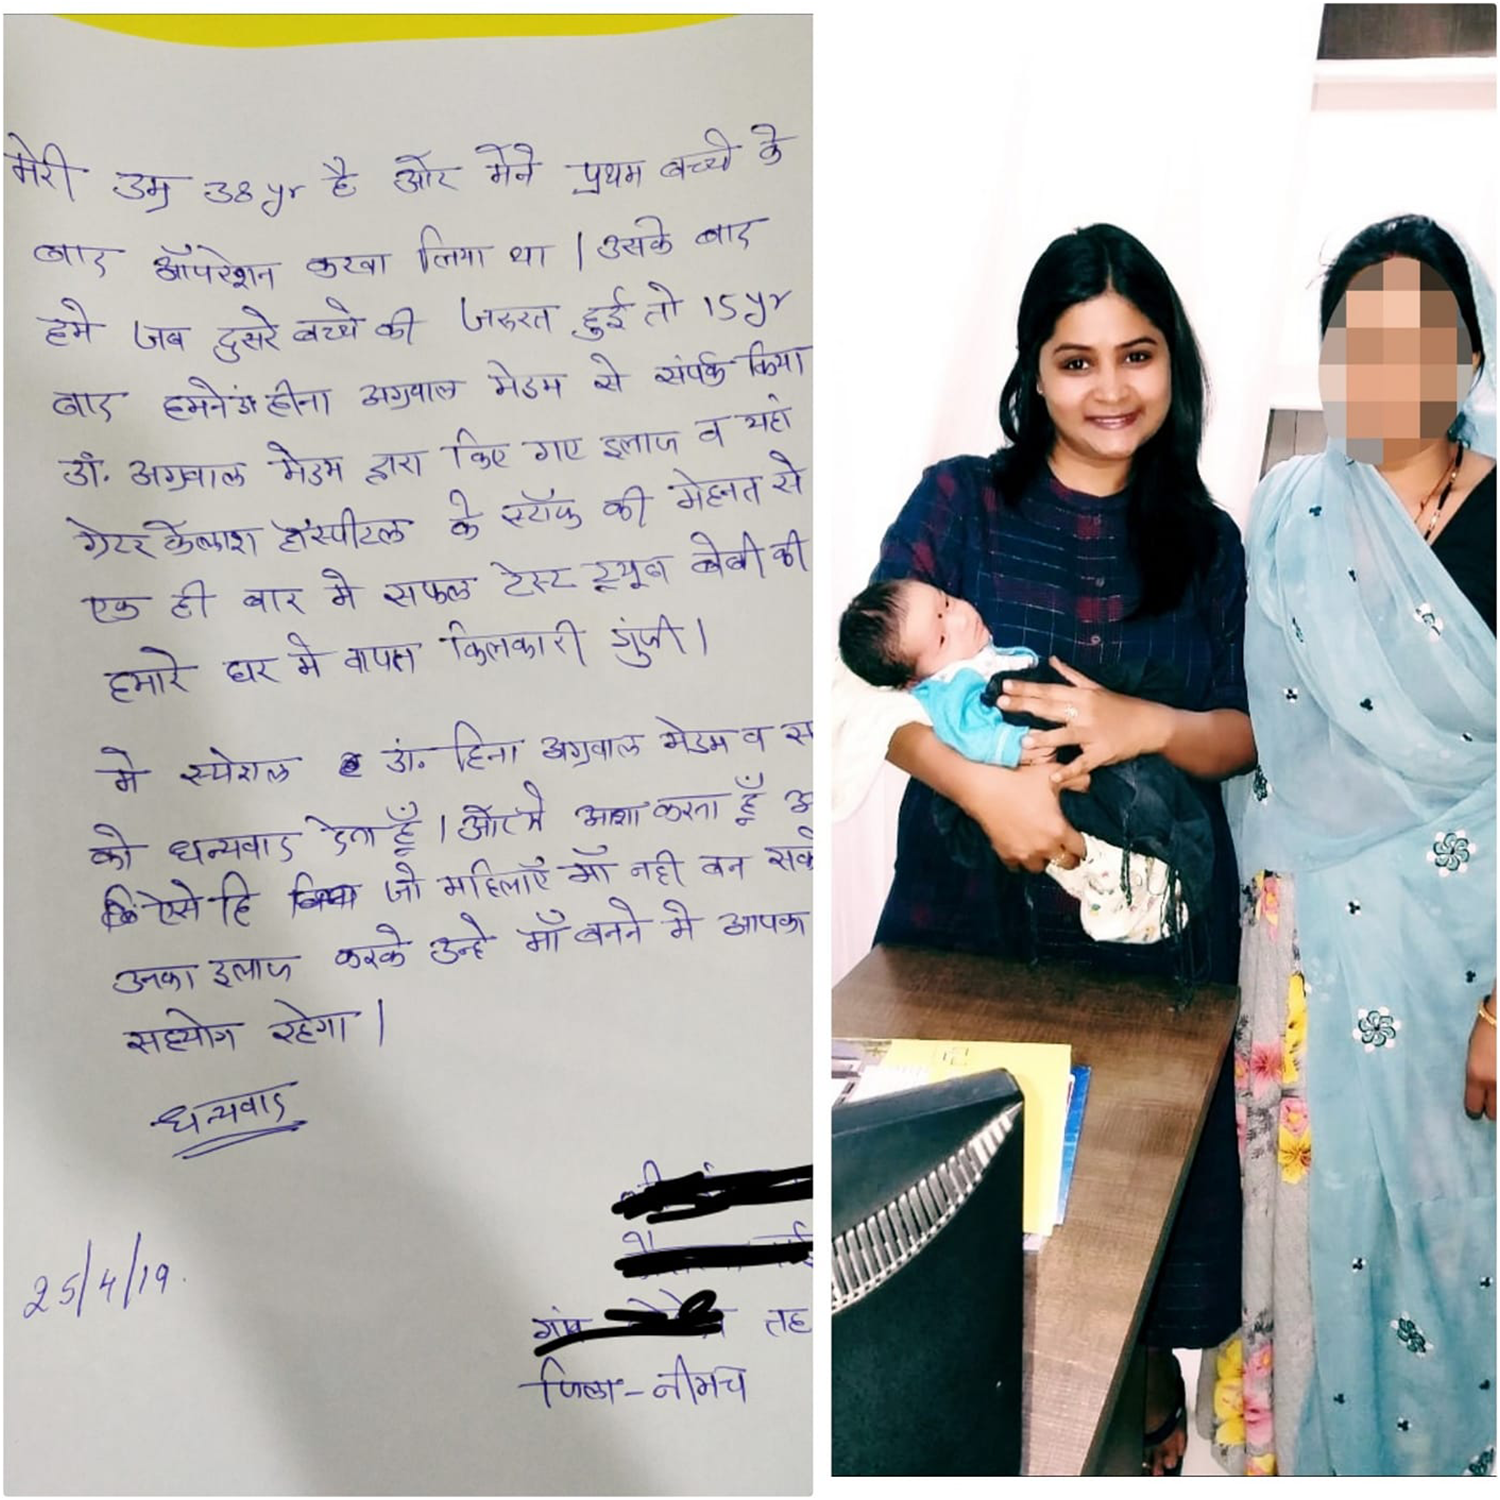 मेरी उम्र 38 yr है और मेंने प्रथम बच्चे के
बाद ऑपरेशन करवा लिया था | उसके बाद
हमे जब दुसरे बच्चे की जरुरत हुई तो 15 yr
बाद हमने डॉ हीना अग्रवाल मेडम से संर्पक किया
डॉ. अग्रवाल मेडम द्वारा किए गए इलाज व यहां
ग्रेटर कैलाश हॉस्पीटल के स्टॉफ की मेहनत से
एक ही बार मे सफल टेस्ट ट्यूब बेबी की
हमारे घर मे वापस किलकारी गुंजी |
मे स्पेशल डॉ. हिना अग्रवाल मेडम व स
को धन्यवाद देता हूँ | और मे आशा करता हूँ
कि ऐसे हि जो महिलाएँ माँ नही बन सके
उनका इलाज करके उन्हे माँ बनने मे आपका
सहयोग रहेगा |
धन्यवाद
25/4/19.
गांव तह
जिला - नीमच